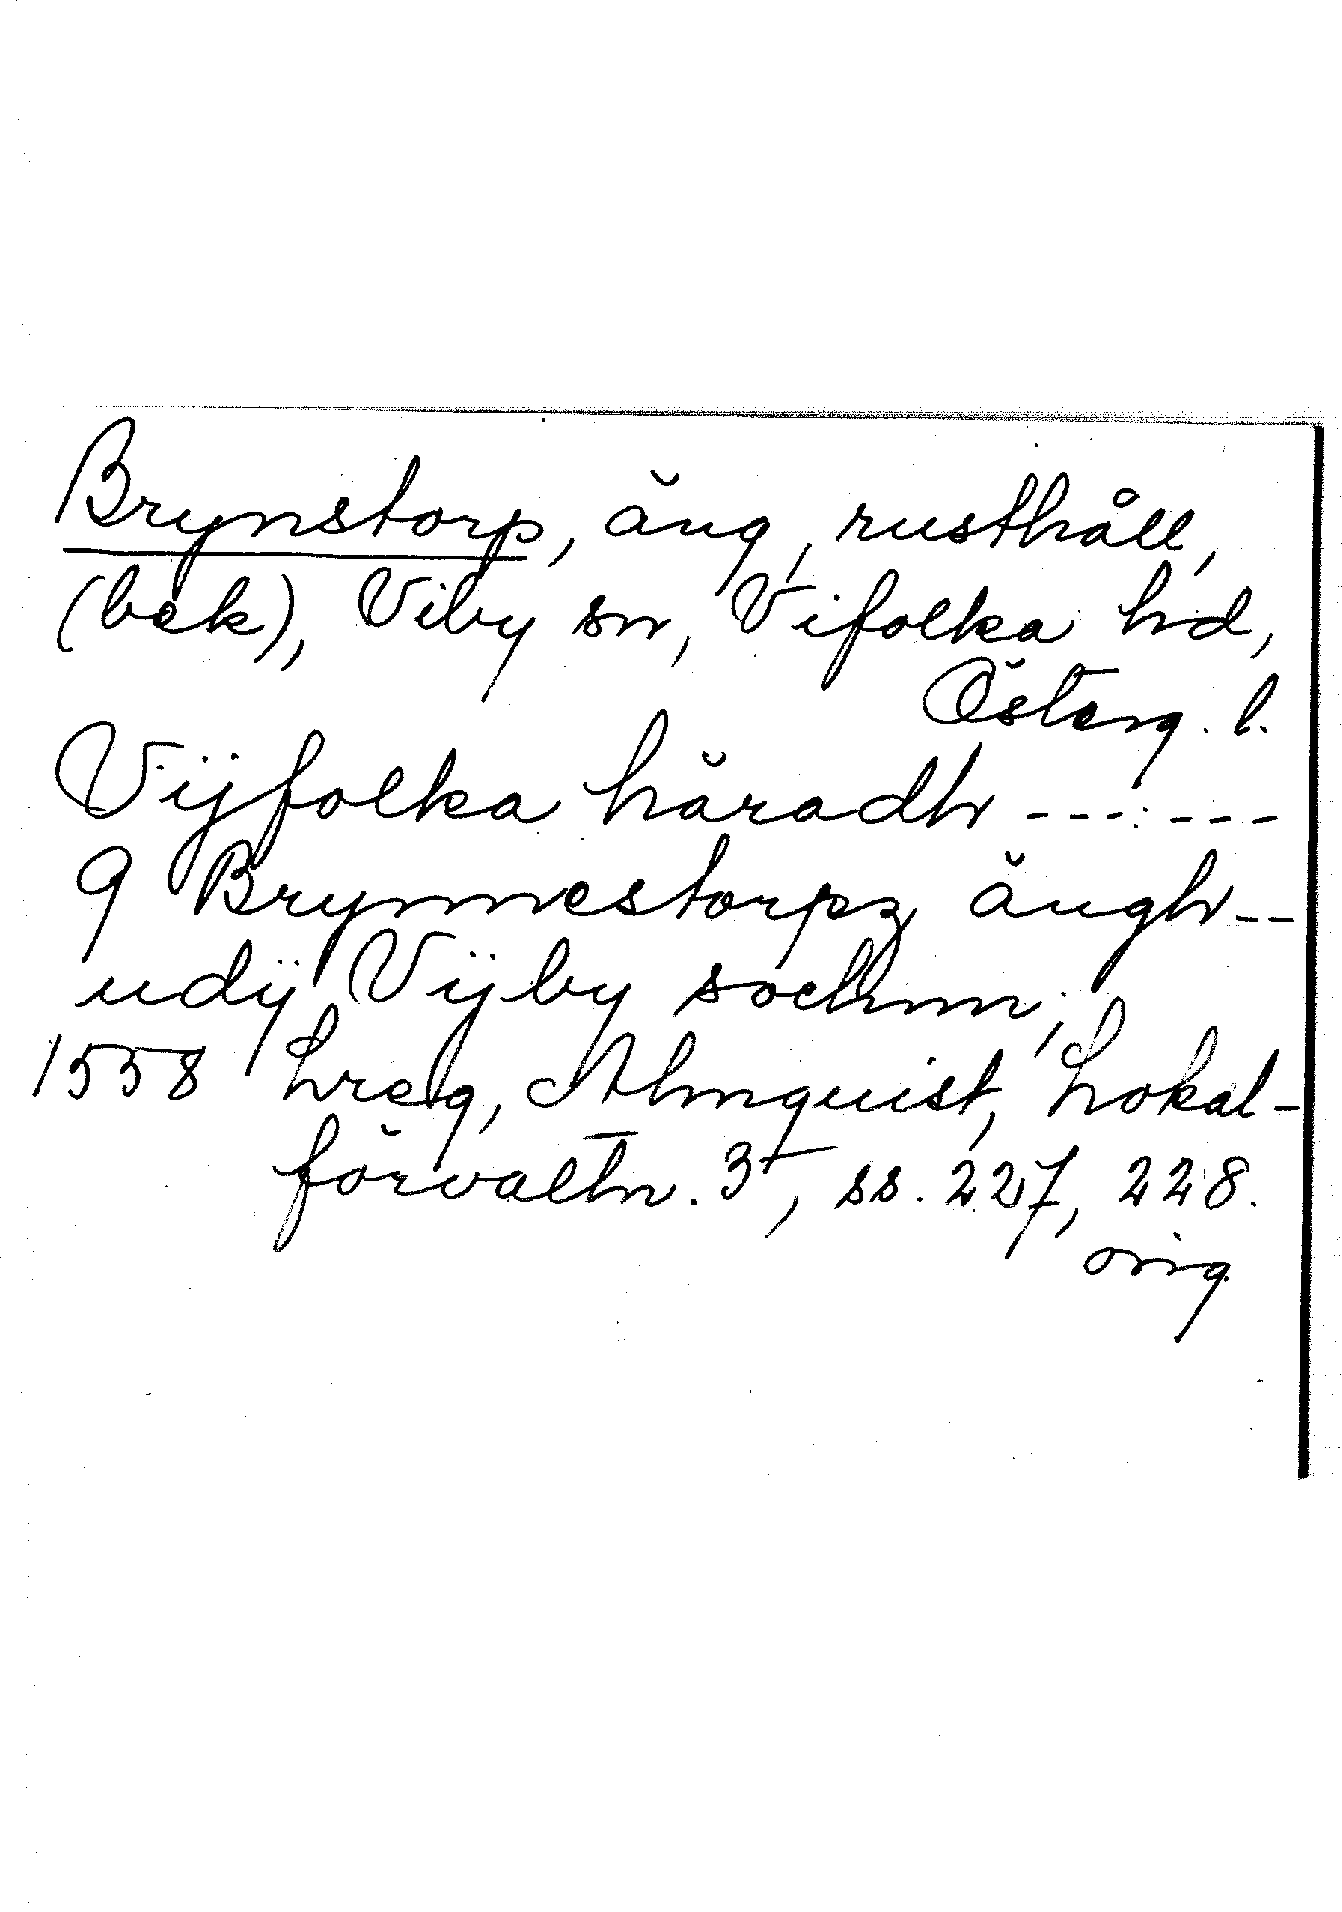 Brynstorp, äng, rusthåll,
(bek), Viby sn, Vifolka hd,
Österg. l.
Vijfolka häradh ---:---
9 Brynnestorpz ängh--
udij Vijby sochnn;
1558 hreg, Almquist, Lokal-
förvaltn. 3, ss. 227, 228.
orig